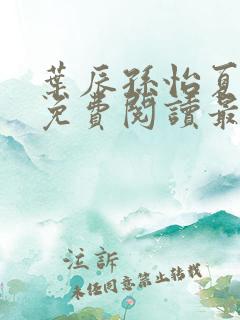 葉辰孫怡夏
免費閱讀最
泣訴
未經同意禁止轉載